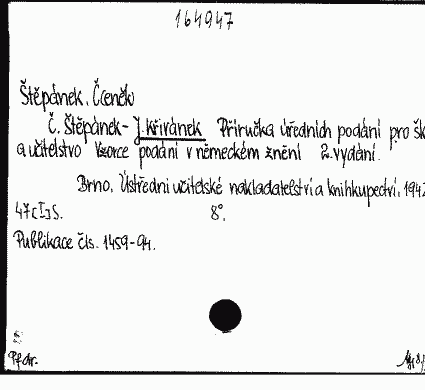 164947
Štěpánek, Čeněk
Č. Štěpánek - J. Křivánek Příručka úředních podání pro šk
a učitelstvo Vzorce podání v německém znění 2. vydání.
Brno, Ústřední učitelské nakladatelství a knihkupectví, 194
47 [I] s. 8°.
Publikace čís. 1459-94.
Př. dr.